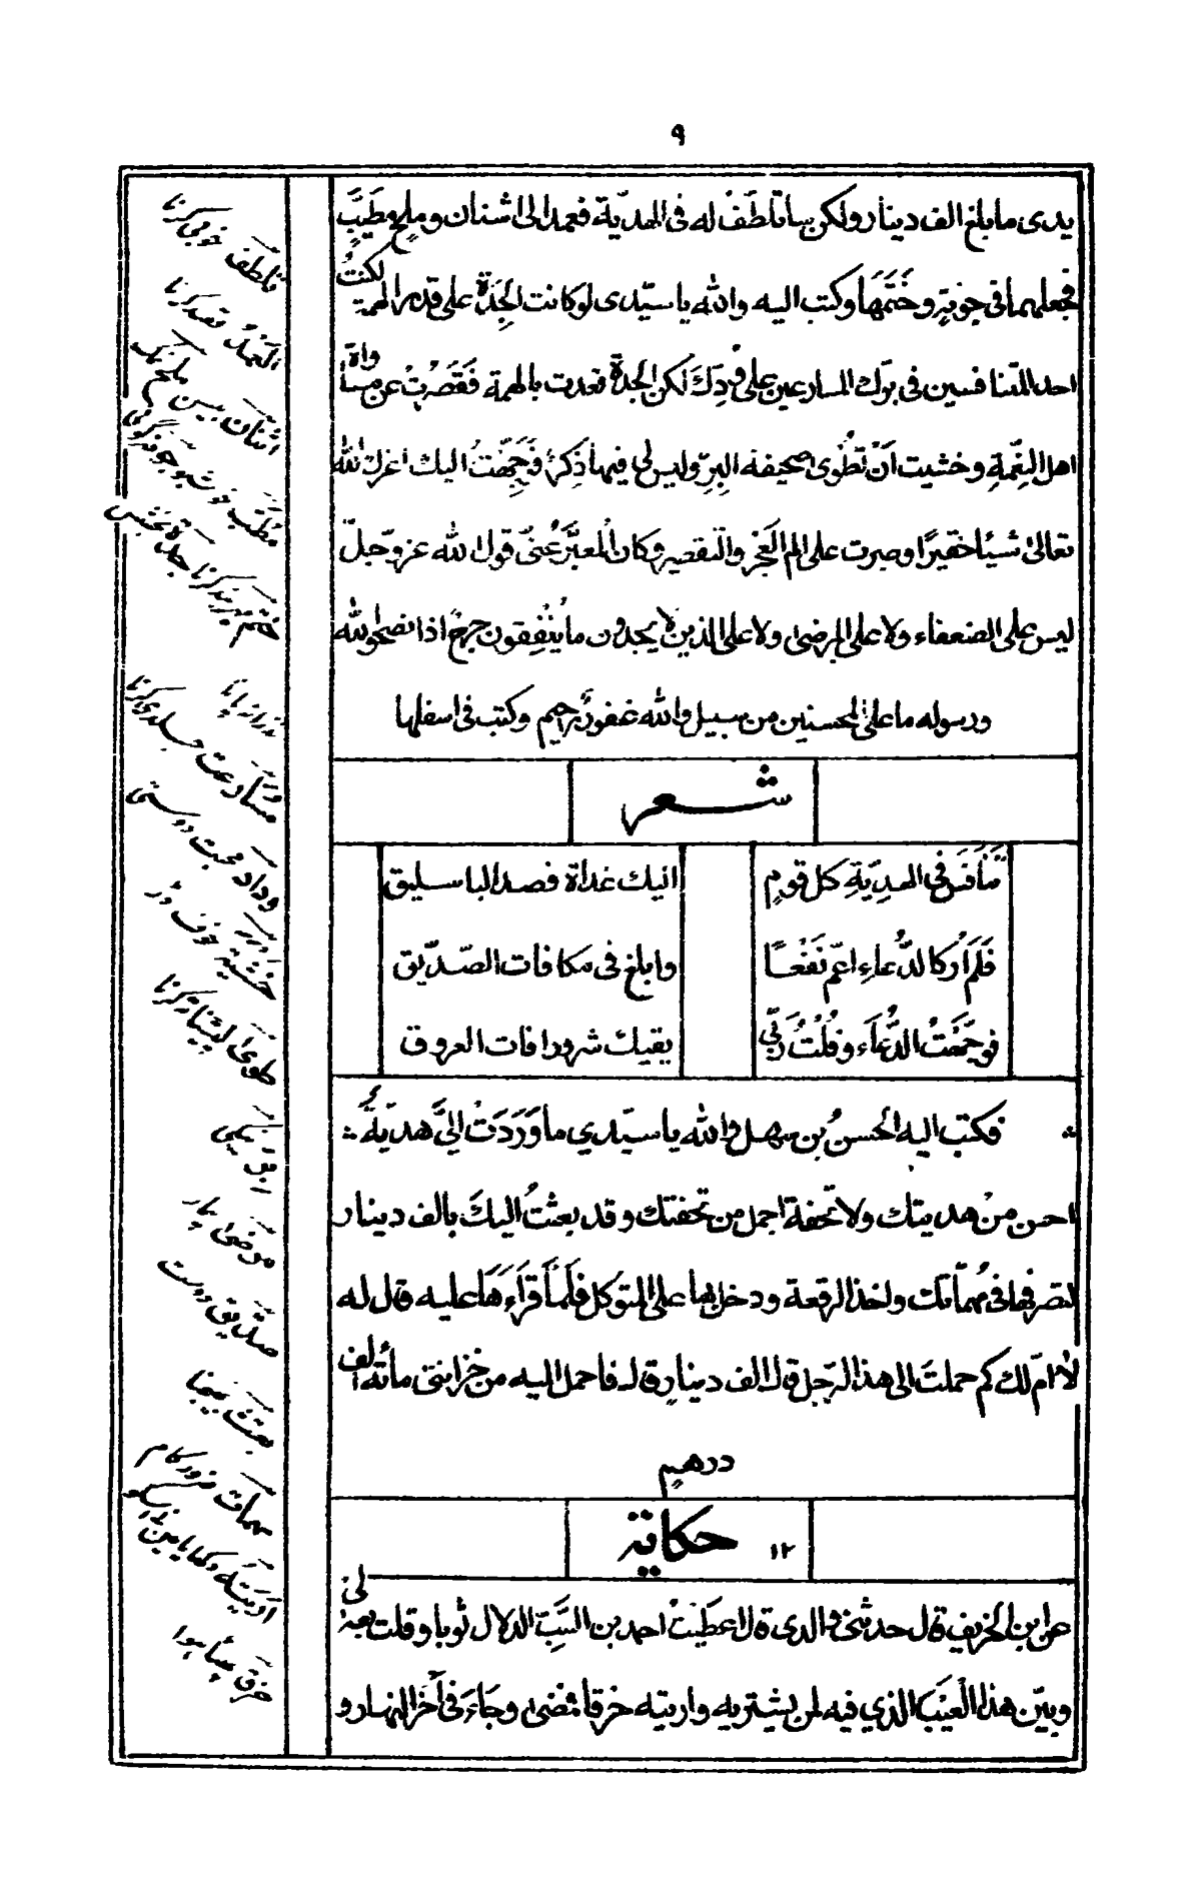 ٩
يدى ما بلغ الف دينار ولكن ساتلطف له فى الهديّة فعمد الى اشنان وملح مطيّب
فجعلهما فى جونةٍ وختمها وكتب اليه والله يا سيّدى لو كانت الجدة على قدر الهمة لكنتُ
احد المتنافسين فى برّك المسارعين على ودّك لكن الجدة قعدت بالهمة فقصرت عن مساواة
اهل النعمة وخشيت ان تطوى صحيفة البرّ وليس لى فيها ذكرٌ فوجّهتُ اليك اعزك الله
تعالى شيئا حقيرًا وصبرت على الم العجز والتقصير وكان المعبّر عنّى قول الله عز وجلّ
ليس على الضعفاء ولا على المرضى ولا على الذين لا يجدون ما ينفقون حرجٌ اذا نصحوا لله
ورسوله ما على المحسنين من سبيل والله غفورٌ رحيم وكتب فى اسفلها
شعر
تنافس فى الهديّةِ كل قومٍ اليك غداة فصد الباسليق
فلم ار كالدّعاءِ اعمّ نفعًا وابلغ فى مكافات الصّديق
فوجّهتُ الدّعاء وقلتُ ربّى يقيك شرور افات العروق
فكتب اليه الحسنُ بن سهل والله يا سيّدي ما وردتْ اليّ هديّةٌ
احسن منْ هديتك ولا تحفة اجمل من تحفتك وقد بعثتُ اليكَ بالف دينار
لتصرفها فى مهمّاتك واخذ الرقعة ودخل بها على المتوكل فلمّا قرأها عليه قال له
لا امّ لك كم حملتَ الى هذا الرّجل قال الف دينارٍ قال فاحمل اليه من خزانتى مائة الف
درهم
١٢ حكاية
عن ابن الخريف قال حدثنى والدى قال اعطيتُ احمد بن السّبّ الدلال ثوبا وقلت بعه لى
وبيّن هذا العيب الذي فيه لمن يشتريه واريته خرقا فمضى وجاءَ فى آخر النهار و
تلطّف خوبى كرنا
العمدُ قصد كرنا
مطيّب خوشبو
ودادٌ محبت دوستى
خشيةٌ خوف
مرضى بيمار
صدّيق دوست
بعث بهيجنا
مهمات ضرور كام
خرق پهٹا ہوا